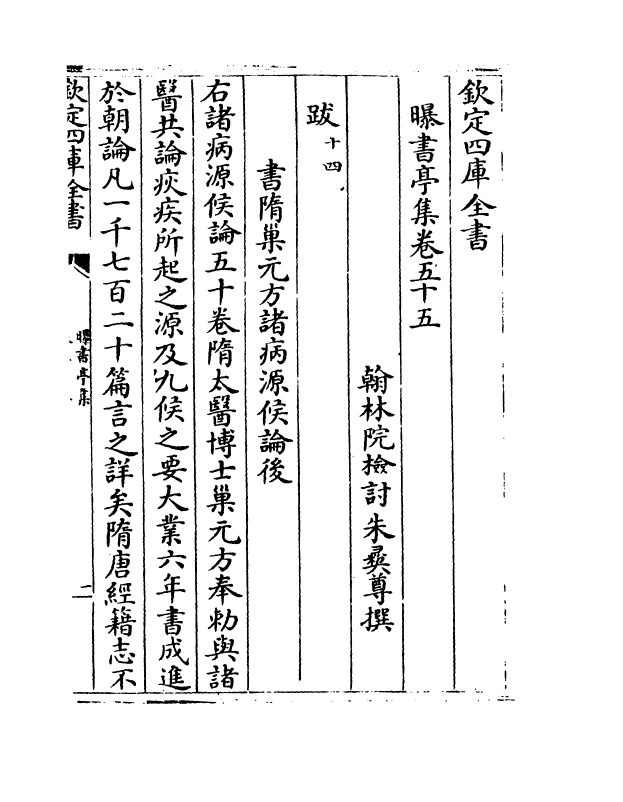 欽定四庫全書
曝書亭集卷五十五
翰林院檢討朱彝尊撰
跋十四
書隋巢元方諸病源候論後
右諸病源候論五十卷隋太醫博士巢元方奉勅與諸
醫共論痎疾所起之源及九候之要大業六年書成進
於朝論凡一千七百二十篇言之詳矣隋唐經籍志不
欽定四庫全書
曝書亭集
一